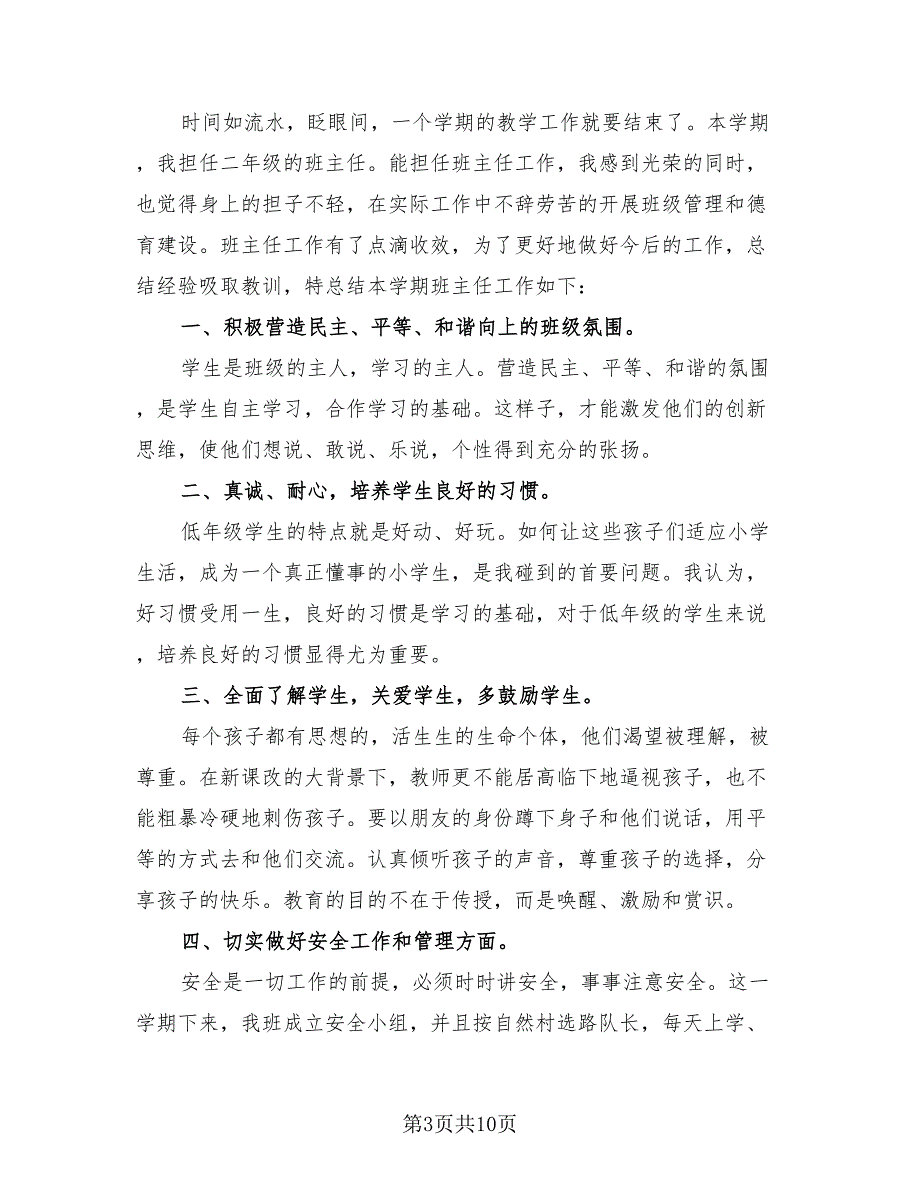 时间如流水，眨眼间，一个学期的教学工作就要结束了。本学期
，我担任二年级的班主任。能担任班主任工作，我感到光荣的同时，
也觉得身上的担子不轻，在实际工作中不辞劳苦的开展班级管理和德
育建设。班主任工作有了点滴收效，为了更好地做好今后的工作，总
结经验吸取教训，特总结本学期班主任工作如下：
一、积极营造民主、平等、和谐向上的班级氛围。
学生是班级的主人，学习的主人。营造民主、平等、和谐的氛围
，是学生自主学习，合作学习的基础。这样子，才能激发他们的创新
思维，使他们想说、敢说、乐说，个性得到充分的张扬。
二、真诚、耐心，培养学生良好的习惯。
低年级学生的特点就是好动、好玩。如何让这些孩子们适应小学
生活，成为一个真正懂事的小学生，是我碰到的首要问题。我认为，
好习惯受用一生，良好的习惯是学习的基础，对于低年级的学生来说
，培养良好的习惯显得尤为重要。
三、全面了解学生，关爱学生，多鼓励学生。
每个孩子都有思想的，活生生的生命个体，他们渴望被理解，被
尊重。在新课改的大背景下，教师更不能居高临下地逼视孩子，也不
能粗暴冷硬地刺伤孩子。要以朋友的身份蹲下身子和他们说话，用平
等的方式去和他们交流。认真倾听孩子的声音，尊重孩子的选择，分
享孩子的快乐。教育的目的不在于传授，而是唤醒、激励和赏识。
四、切实做好安全工作和管理方面。
安全是一切工作的前提，必须时时讲安全，事事注意安全。这一
学期下来，我班成立安全小组，并且按自然村选路队长，每天上学、
第3页共10页